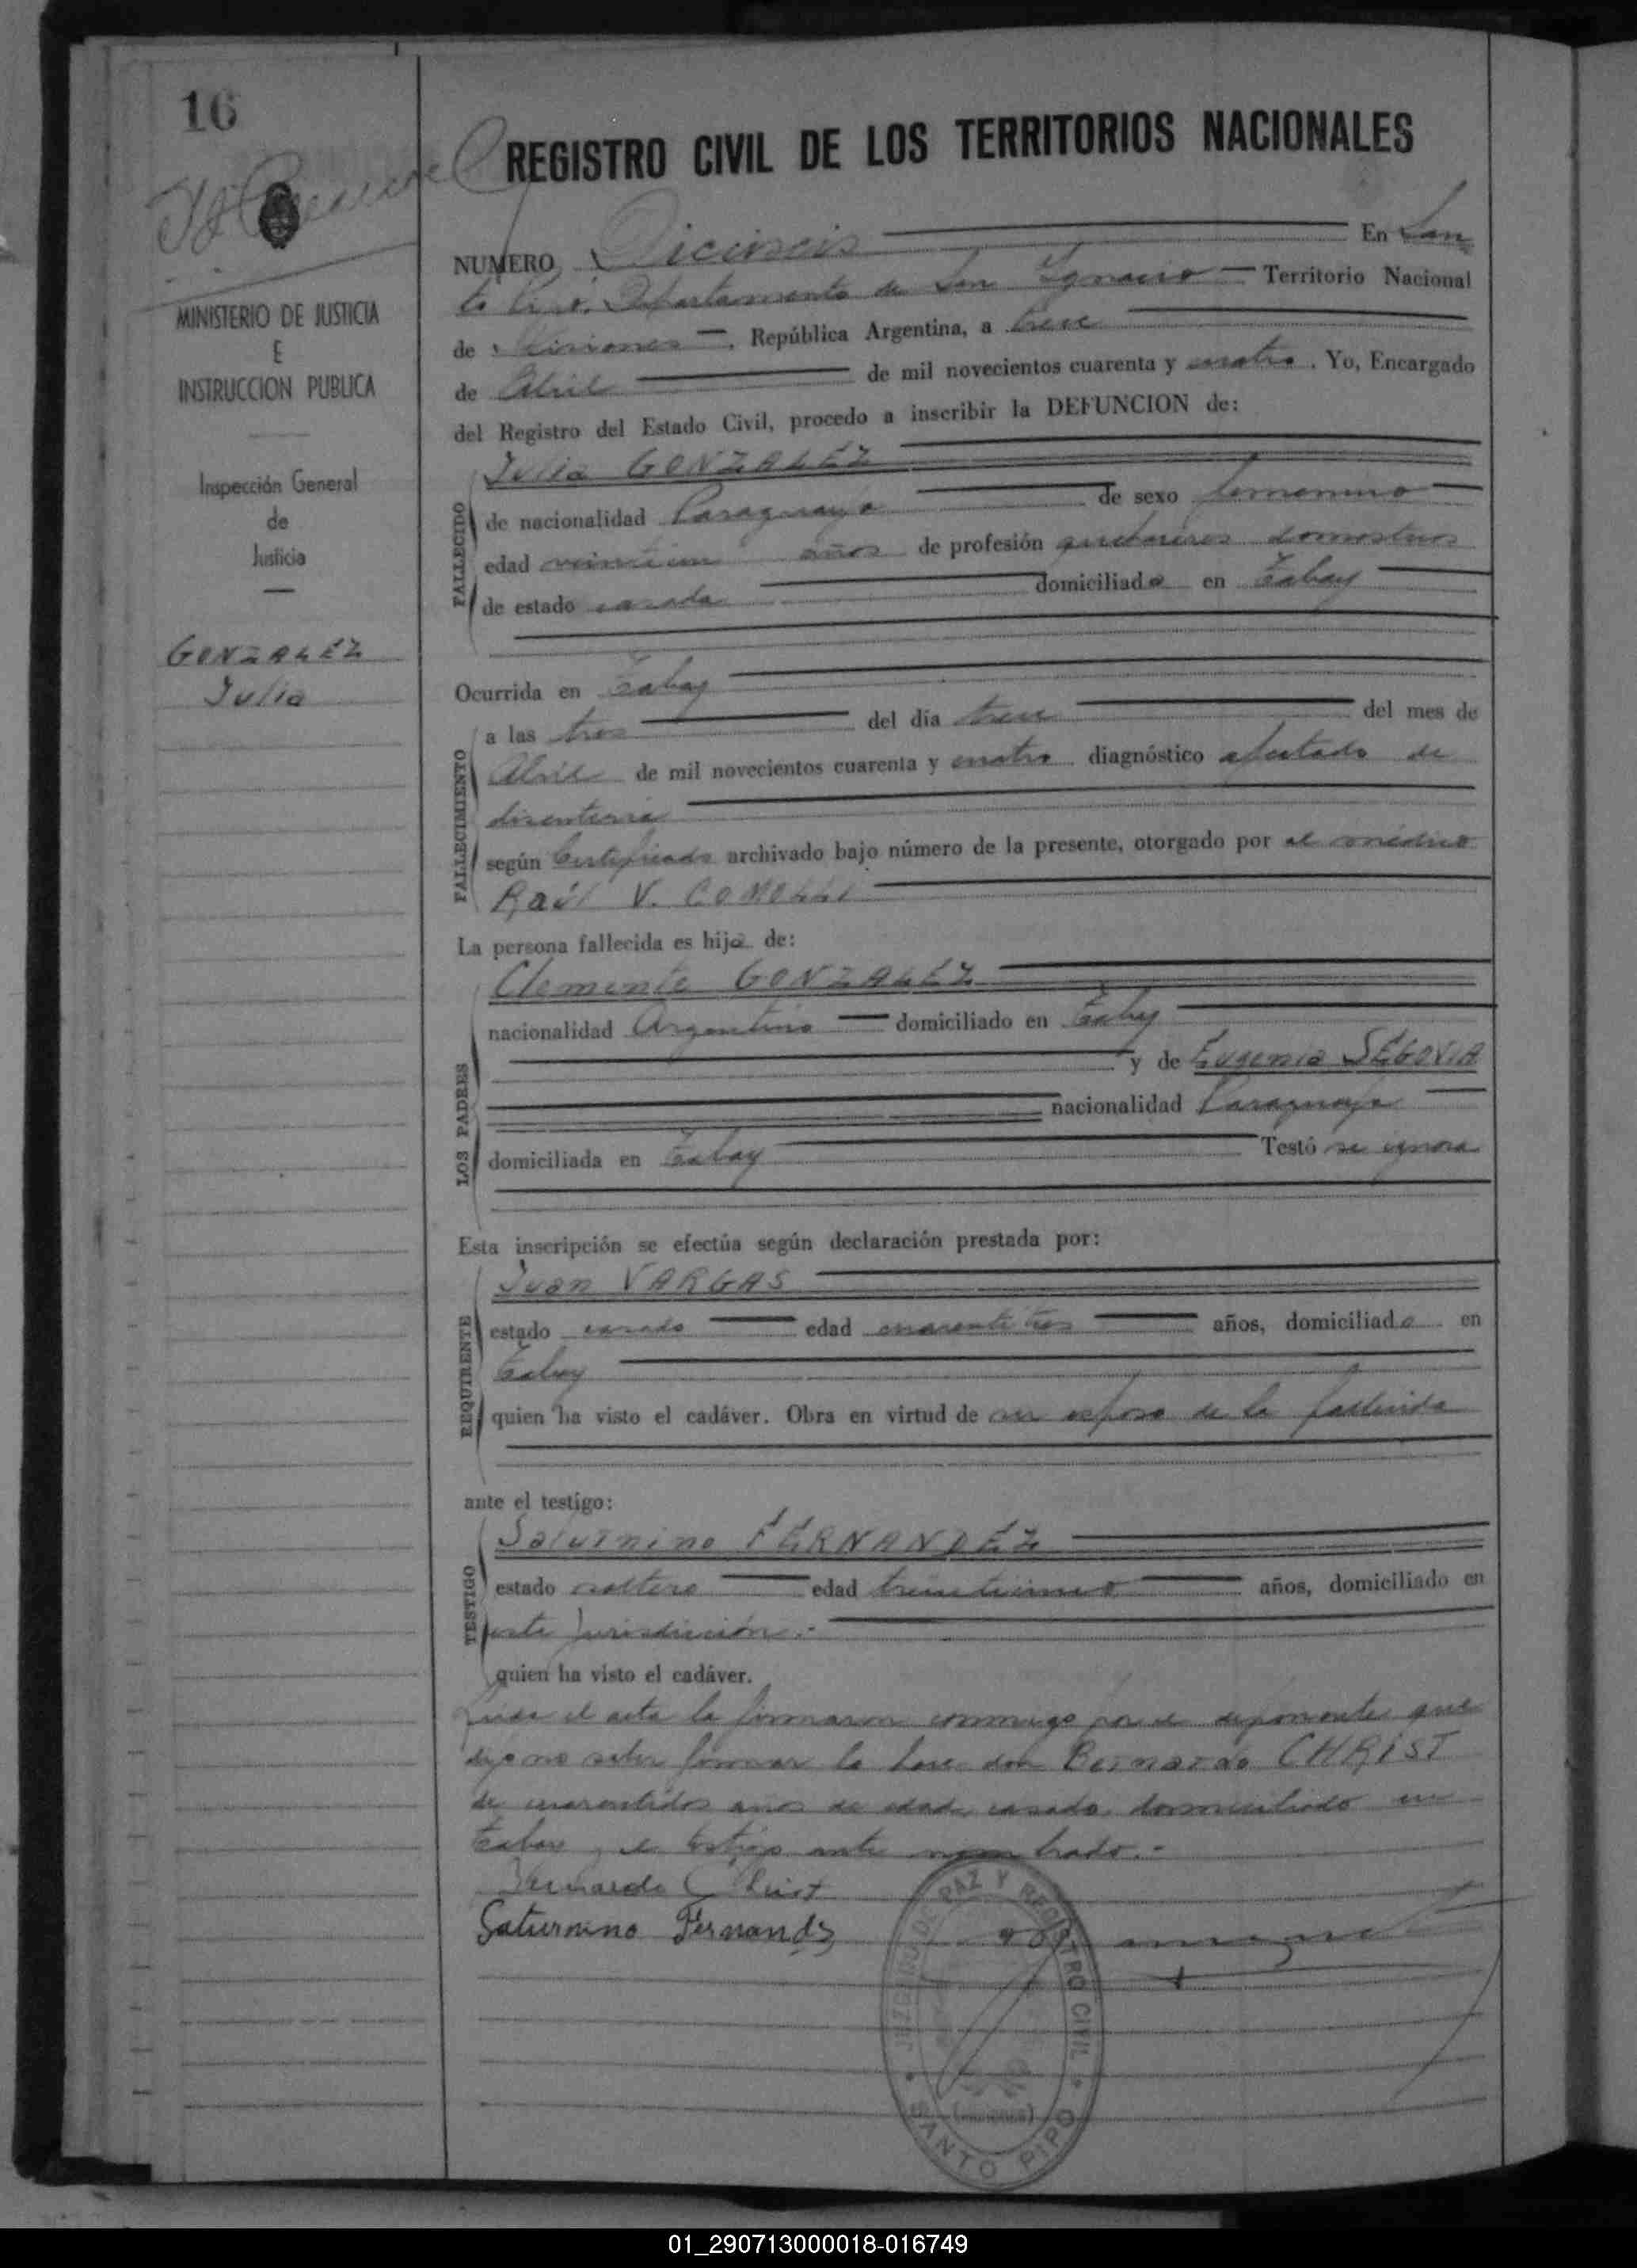 16
REGISTRO CIVIL DE LOS TERRITORIOS NACIONALES
NUMERO Dieciseis En San
to Pipó. Departamento de San Ignacio Territorio Nacional
de Misiones, República Argentina, a trece
de Abril de mil novecientos cuarenta y cuatro. Yo, Encargado
del Registro del Estado Civil, procedo a inscribir la DEFUNCION de:
MINISTERIO DE JUSTICIA
E
INSTRUCCION PUBLICA
Inspección General
de
Justicia
GONZALEZ
Julia
FALLECIDO
Julia GONZALEZ
de nacionalidad Paraguaya de sexo femenino
edad veintiun años de profesión quehaceres domesticos
de estado casada domiciliada en Tabay
Ocurrida en Tabay
FALLECIMIENTO
a las tres del día trece del mes de
Abril de mil novecientos cuarenta y cuatro diagnóstico afectado de
disenteria
según Certificado archivado bajo número de la presente, otorgado por el médico
Raúl V. COMOLLI
La persona fallecida es hija de:
LOS PADRES
Clemente GONZALEZ
nacionalidad Argentino domiciliado en Tabay
y de Eugenia SEGOVIA
nacionalidad Paraguaya
domiciliada en Tabay Testó se ignora
Esta inscripción se efectúa según declaración prestada por:
REQUIRENTE
Juan VARGAS
estado casado edad cuarentitres años, domiciliado en
Tabay
quien ha visto el cadáver. Obra en virtud de ser esposo de la fallecida
ante el testigo:
TESTIGO
Saturnino FERNANDEZ
estado soltero edad años, domiciliado en
esta Jurisdicción.-
quien ha visto el cadáver.
Leida el acta la firmaron conmigo por el deponente que
dijo no saber firmar lo hace don Bernardo CHRIST
de cuarentidos años de edad, casado, domiciliado en
Tabay, y el testigo ante nombrado.-
Bernardo Christ
Saturnino Fernandz
JUZGADO DE PAZ Y REGISTRO CIVIL
SANTO PIPO
(MISIONES)
01_290713000018-016749